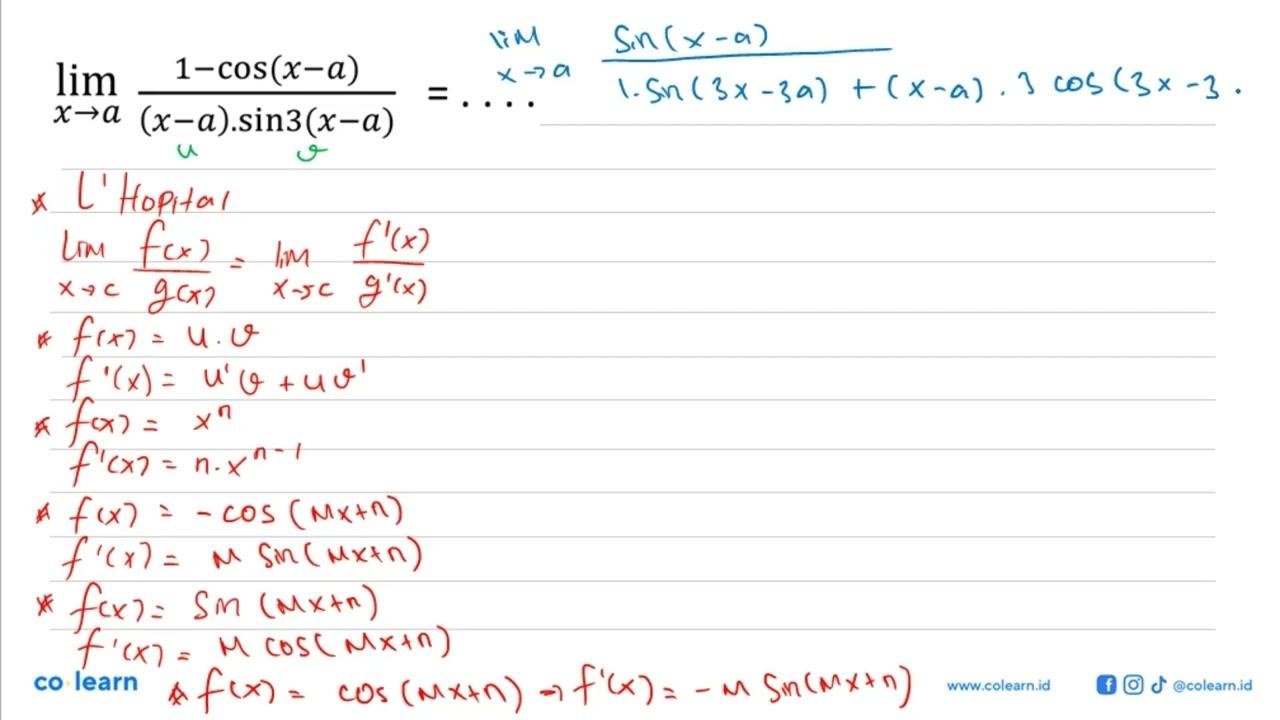 lim x→a 1−cos(x−a) / (x−a).sin3(x−a) = . . . . lim x→a Sin(x-a) / 1.Sin(3x-3a) + (x-a).3 cos(3x-3.
u v
* L'Hopital
Lim x→c f(x)/g(x) = lim x→c f'(x)/g'(x)
* f(x) = u.v
f'(x) = u'v + uv'
* f(x) = xⁿ
f'(x) = n.xⁿ⁻¹
* f(x) = -cos (Mx+n)
f'(x) = M Sin(Mx+n)
* f(x) = Sin (Mx+n)
f'(x) = M cos(Mx+n)
* f(x) = cos(Mx+n) → f'(x) = -M Sin(Mx+n)
co learn
www.colearn.id
@colearn.id